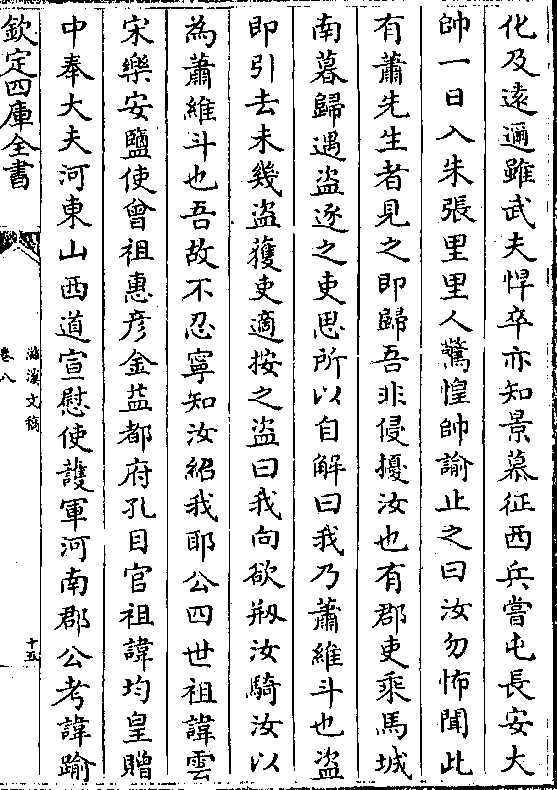 化及遠邇雖武夫悍卒亦知景慕征西兵嘗屯長安大
帥一日入朱張里里人驚惶帥諭止之曰汝勿怖聞此
有蕭先生者見之即歸吾非侵擾汝也有郡吏乘馬城
南暮歸遇盗逐之吏思所以自解曰我乃蕭維斗也盗
即引去未幾盗獲吏適按之盗曰我向欲剏汝騎汝以
為蕭維斗也吾故不忍寧知汝紹我耶公四世祖諱雲
宋樂安鹽使曾祖惠彦金益都府孔目官祖諱均皇贈
中奉大夫河東山西道宣慰使護軍河南郡公考諱踰
欽定四庫全書
滋溪文稿
卷八
十五